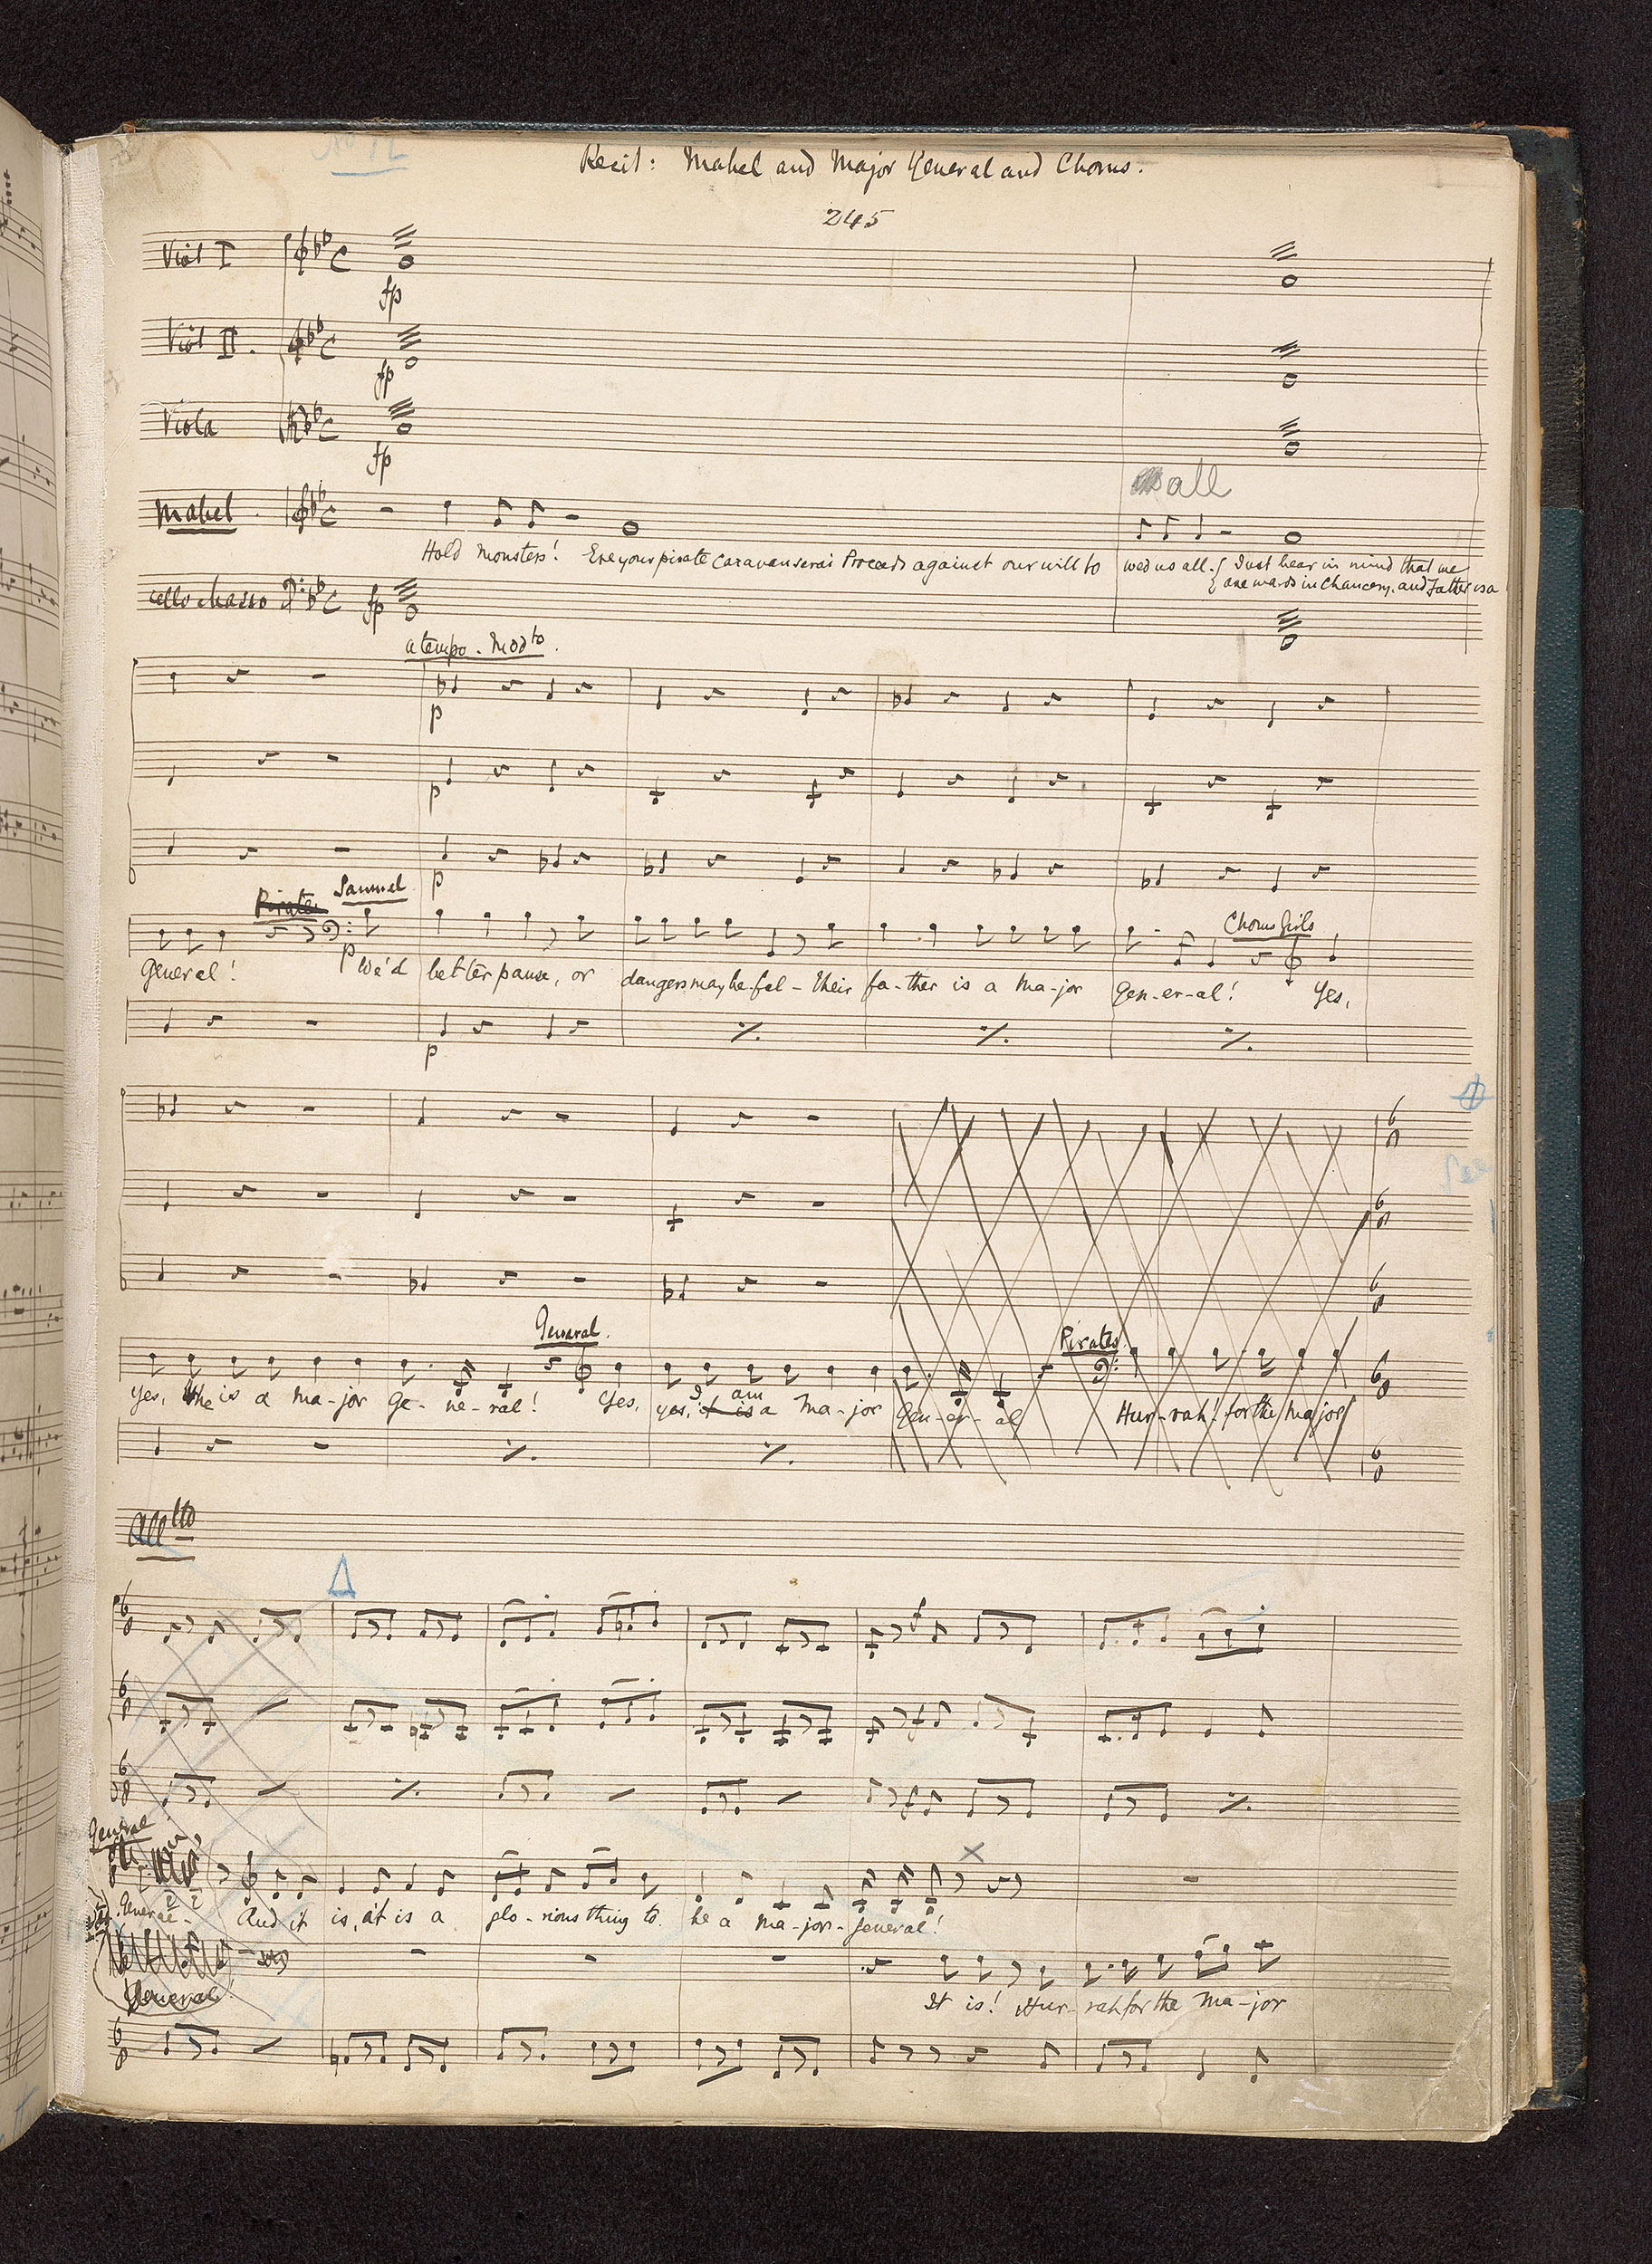 No 12
Recit: Mabel and Major General and Chorus.
245
Viol I
fp
Viol II.
fp
Viola
fp
all
Mabel
Hold monsters! Ere your pirate caravanserai Proceeds against our will to wed us all. Just bear in mind that we
are wards in Chancery. and father is a
cello & basso fp
a tempo. Modto.
p
p
p
Pirate Samuel
Chorus Girls
General! p We'd better pause, or dangers may be-fal - their fa-ther is a Ma-jor Gen-er-al! Yes,
p
See
General.
Pirates
I am
yes, he is a Ma-jor Ge-ne-ral! Yes, yes, it is a Ma-jor Gen-er-al Hur-rah! for the Major
Alltto
General
General - And it is, it is a glo-rious thing to be a Ma-jor-General!
General!
It is! Hur-rah for the Ma-jor